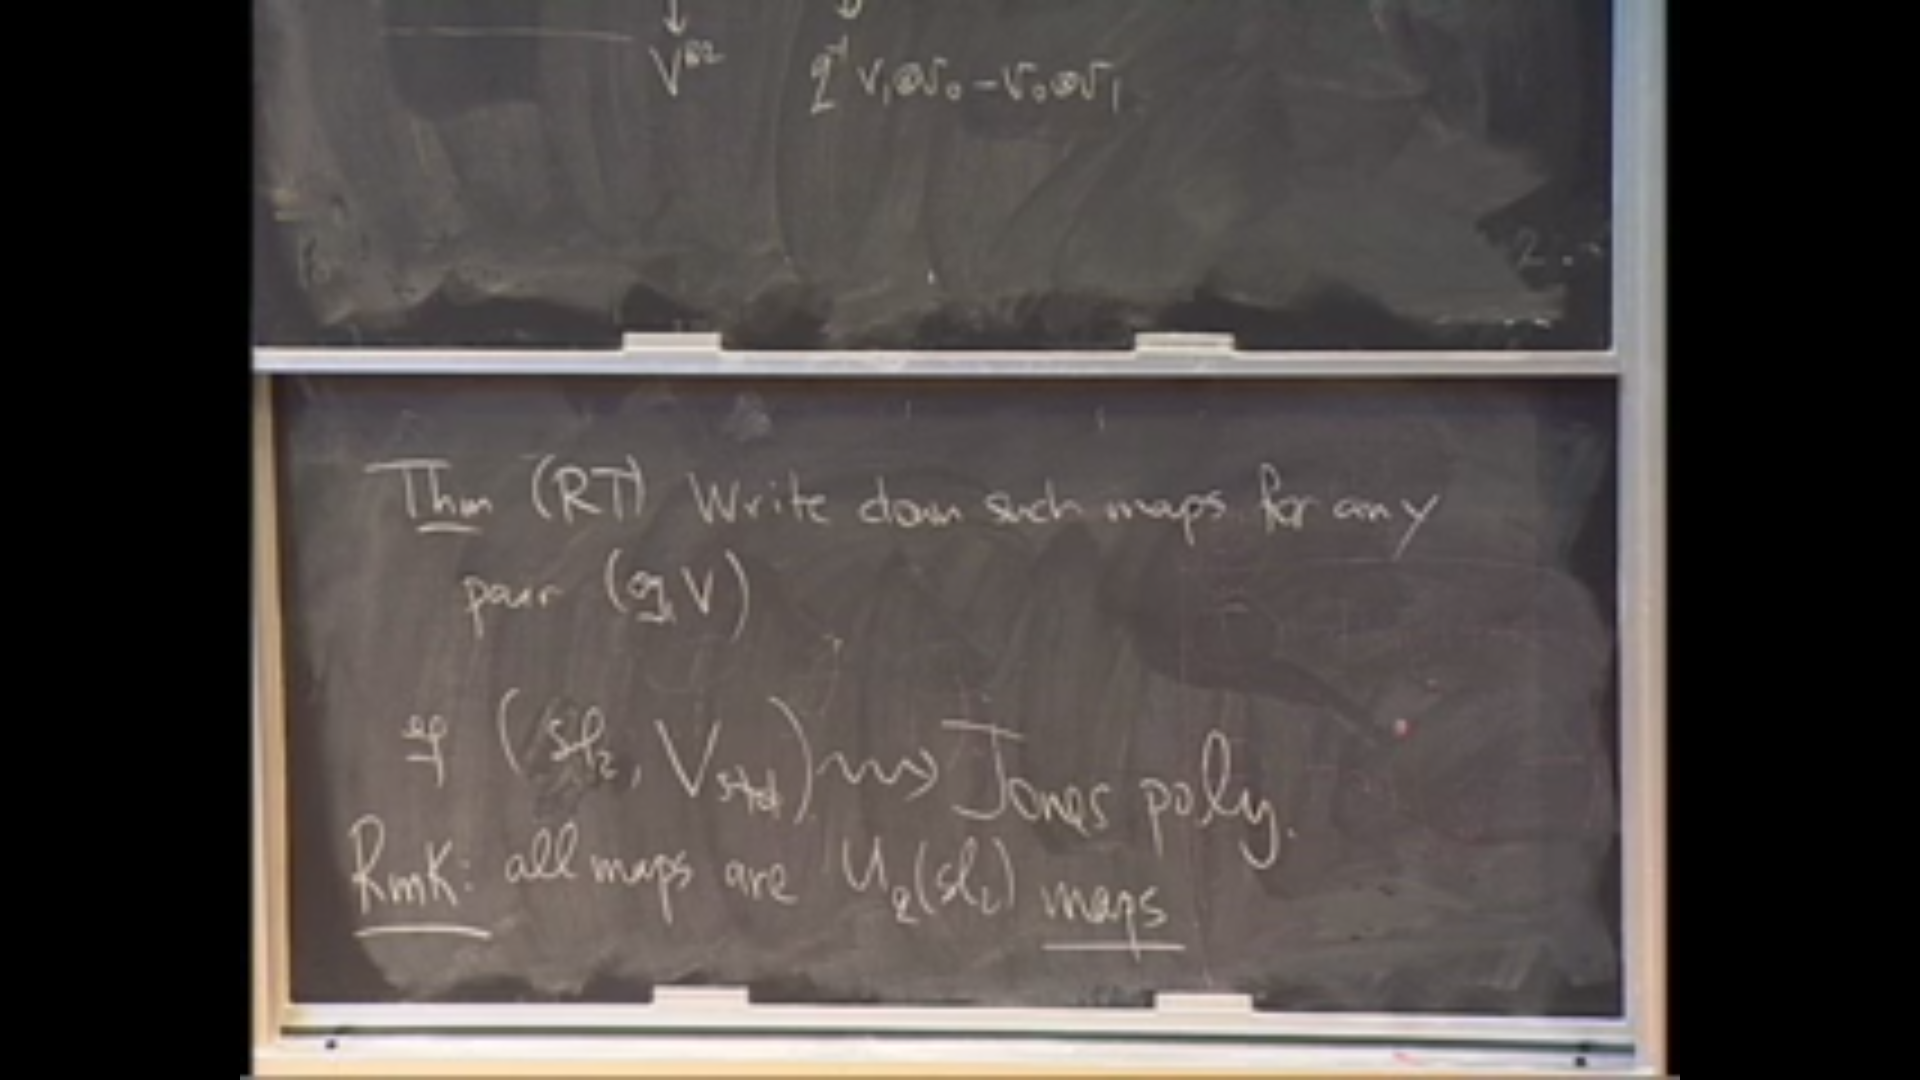 V^{⊗2} q^{-1} v_1⊗v_0 - v_0⊗v_1
2.
Thm (RT) Write down such maps for any
pair (g, V)
eg (sl_2, V_std) ⇝ Jones poly.
Rmk: all maps are U_q(sl_2) maps